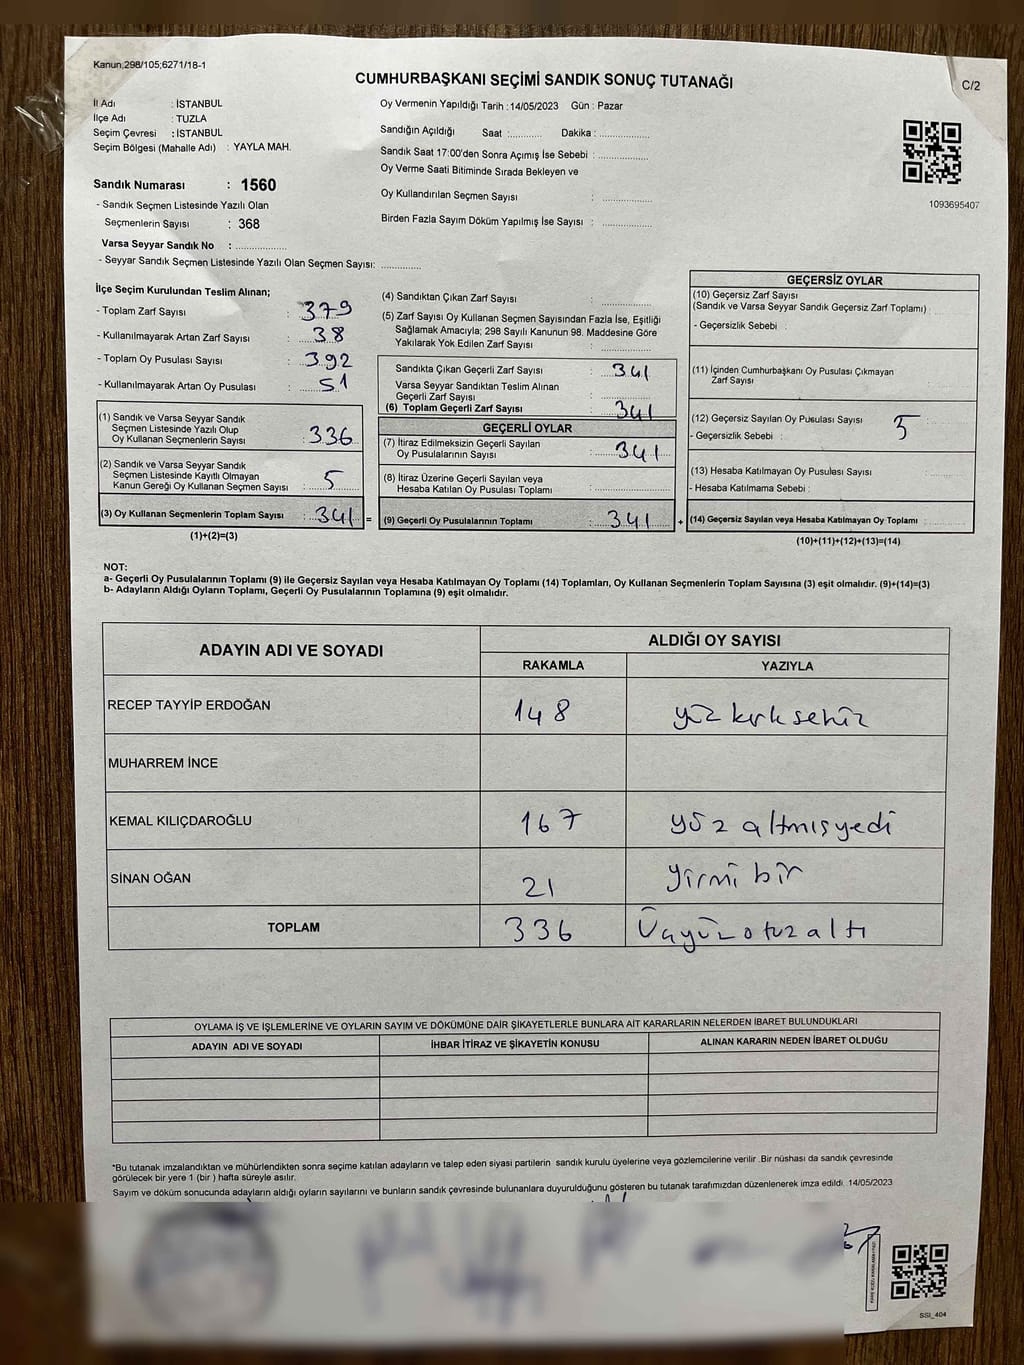 Kanun,298/105;6271/18-1
CUMHURBAŞKANI SEÇİMİ SANDIK SONUÇ TUTANAĞI
C/2
İl Adı : İSTANBUL
İlçe Adı : TUZLA
Seçim Çevresi : İSTANBUL
Seçim Bölgesi (Mahalle Adı) : YAYLA MAH.
Sandık Numarası : 1560
- Sandık Seçmen Listesinde Yazılı Olan
Seçmenlerin Sayısı : 368
Varsa Seyyar Sandık No : ................
- Seyyar Sandık Seçmen Listesinde Yazılı Olan Seçmen Sayısı: .............
Oy Vermenin Yapıldığı Tarih : 14/05/2023 Gün : Pazar
Sandığın Açıldığı Saat :........... Dakika : ................
Sandık Saat 17:00'den Sonra Açımış İse Sebebi : ................
Oy Verme Saati Bitiminde Sırada Bekleyen ve
Oy Kullandırılan Seçmen Sayısı : ................
Birden Fazla Sayım Döküm Yapılmış İse Sayısı : ................
1093695407
İlçe Seçim Kurulundan Teslim Alınan;
- Toplam Zarf Sayısı : 379
- Kullanılmayarak Artan Zarf Sayısı : 38
- Toplam Oy Pusulası Sayısı : 392
- Kullanılmayarak Artan Oy Pusulası : 51
(1) Sandık ve Varsa Seyyar Sandık
Seçmen Listesinde Yazılı Olup
Oy Kullanan Seçmenlerin Sayısı : 336
(2) Sandık ve Varsa Seyyar Sandık
Seçmen Listesinde Kayıtlı Olmayan
Kanun Gereği Oy Kullanan Seçmen Sayısı : 5
(3) Oy Kullanan Seçmenlerin Toplam Sayısı : 341 =
(1)+(2)=(3)
(4) Sandıktan Çıkan Zarf Sayısı : ................
(5) Zarf Sayısı Oy Kullanan Seçmen Sayısından Fazla İse, Eşitliği
Sağlamak Amacıyla; 298 Sayılı Kanunun 98. Maddesine Göre
Yakılarak Yok Edilen Zarf Sayısı : ................
Sandıkta Çıkan Geçerli Zarf Sayısı : 341
Varsa Seyyar Sandıktan Teslim Alınan
Geçerli Zarf Sayısı : ................
(6) Toplam Geçerli Zarf Sayısı : 341
GEÇERLİ OYLAR
(7) İtiraz Edilmeksizin Geçerli Sayılan
Oy Pusulalarının Sayısı : 341
(8) İtiraz Üzerine Geçerli Sayılan veya
Hesaba Katılan Oy Pusulası Toplamı : ................
(9) Geçerli Oy Pusulalarının Toplamı : 341 +
GEÇERSİZ OYLAR
(10) Geçersiz Zarf Sayısı
(Sandık ve Varsa Seyyar Sandık Geçersiz Zarf Toplamı) :
- Geçersizlik Sebebi :
(11) İçinden Cumhurbaşkanı Oy Pusulası Çıkmayan
Zarf Sayısı :
(12) Geçersiz Sayılan Oy Pusulası Sayısı : 5
- Geçersizlik Sebebi :
(13) Hesaba Katılmayan Oy Pusulası Sayısı :
- Hesaba Katılmama Sebebi :
(14) Geçersiz Sayılan veya Hesaba Katılmayan Oy Toplamı :
(10)+(11)+(12)+(13)=(14)
NOT:
a- Geçerli Oy Pusulalarının Toplamı (9) ile Geçersiz Sayılan veya Hesaba Katılmayan Oy Toplamı (14) Toplamları, Oy Kullanan Seçmenlerin Toplam Sayısına (3) eşit olmalıdır. (9)+(14)=(3)
b- Adayların Aldığı Oyların Toplamı, Geçerli Oy Pusulalarının Toplamına (9) eşit olmalıdır.
ADAYIN ADI VE SOYADI ALDIĞI OY SAYISI
RAKAMLA YAZIYLA
RECEP TAYYİP ERDOĞAN 148 yüz kırk sekiz
MUHARREM İNCE
KEMAL KILIÇDAROĞLU 167 yüz altmışyedi
SİNAN OĞAN 21 yirmi bir
TOPLAM 336 Üçyüzotuzaltı
OYLAMA İŞ VE İŞLEMLERİNE VE OYLARIN SAYIM VE DÖKÜMÜNE DAİR ŞİKAYETLERLE BUNLARA AİT KARARLARIN NELERDEN İBARET BULUNDUKLARI
ADAYIN ADI VE SOYADI İHBAR İTİRAZ VE ŞİKAYETİN KONUSU ALINAN KARARIN NEDEN İBARET OLDUĞU
*Bu tutanak imzalandıktan ve mühürlendikten sonra seçime katılan adayların ve talep eden siyasi partilerin sandık kurulu üyelerine veya gözlemcilerine verilir .Bir nüshası da sandık çevresinde
görülecek bir yere 1 (bir ) hafta süreyle asılır.
Sayım ve döküm sonucunda adayların aldığı oyların sayılarını ve bunların sandık çevresinde bulunanlara duyurulduğunu gösteren bu tutanak tarafımızdan düzenlenerek imza edildi. 14/05/2023
SSİ_404